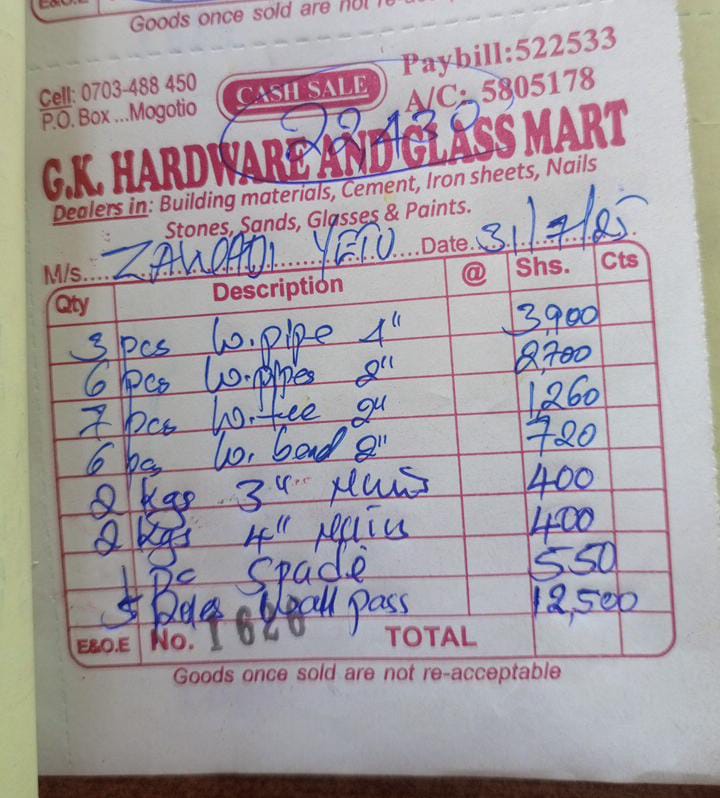 E&O.E
Goods once sold are not re-acc
Cell: 0703-488 450
P.O. Box ...Mogotio
CASH SALE
Paybill:522533
A/C: 5805178
22430
G.K. HARDWARE AND GLASS MART
Dealers in: Building materials, Cement, Iron sheets, Nails
Stones, Sands, Glasses & Paints.
M/s....ZAWADI YETU Date 31/7/25
Qty Description @ Shs. Cts
3 pcs W.pipe 4" 3,900
6 pcs W.pipes 2" 2,700
7 pcs W.tee 2" 1,260
6 pcs W. bend 2" 720
2 kgs 3" Nails 400
2 kgs 4" Nails 400
1 Pc Spade 550
5 wall pass 12,500
E&O.E No. 1628 TOTAL
Goods once sold are not re-acceptable